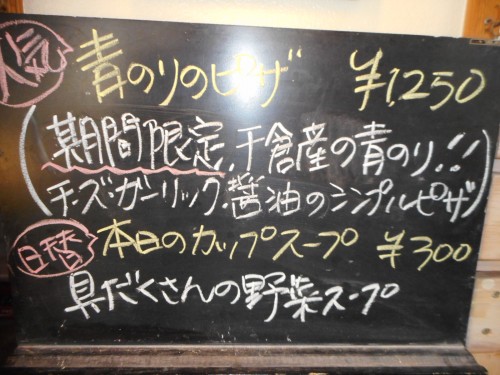 人気 青のりのピザ ¥1,250
(期間限定、千倉産の青のり!!
チーズ・ガーリック・醤油のシンプルピザ)
日替 本日のカップスープ ¥300
具だくさんの野菜スープ